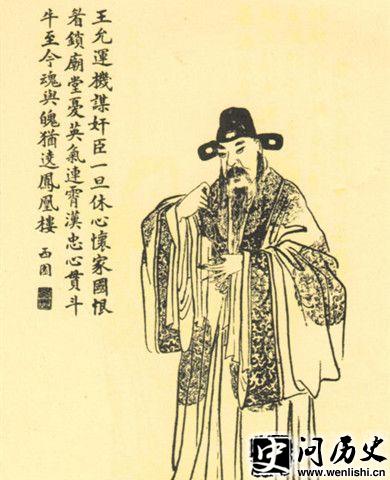 王允運機謀奸臣一旦休心懷家國恨
眉鎖廟堂憂英氣連霄漢忠心貫斗
牛至今魂與魄猶遶鳳凰樓 西園
史 问历史
www.wenlishi.cn